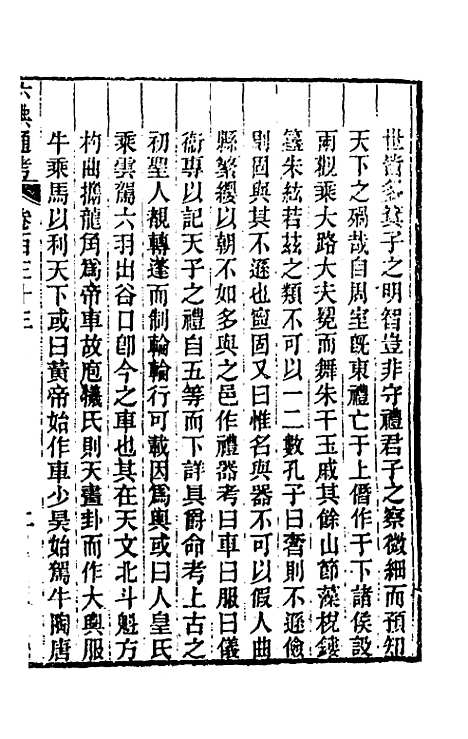 世皆多箕子之明智豈非守禮君子之察微細而預知
天下之禍哉自周室旣東禮亡于上僭作于下諸侯設
兩觀乘大路大夫冕而舞朱干玉戚其餘山節藻梲鏤
簋朱紘若茲之類不可以一二數孔子曰奢則不遜儉
則固與其不遜也寧固又曰惟名與器不可以假人曲
縣繁纓以朝不如多與之邑作禮器考曰車曰服曰儀
衞專以記天子之禮自五等而下詳具爵命考上古之
初聖人覩轉蓬而制輪輪行可載因爲輿或曰人皇氏
乘雲駕六羽出谷口卽今之車也其在天文北斗魁方
杓曲攜龍角爲帝車故庖犧氏則天畫卦而作大輿服
牛乘馬以利天下或曰黃帝始作車少昊始駕牛陶唐
六典通考 卷百三十三 二